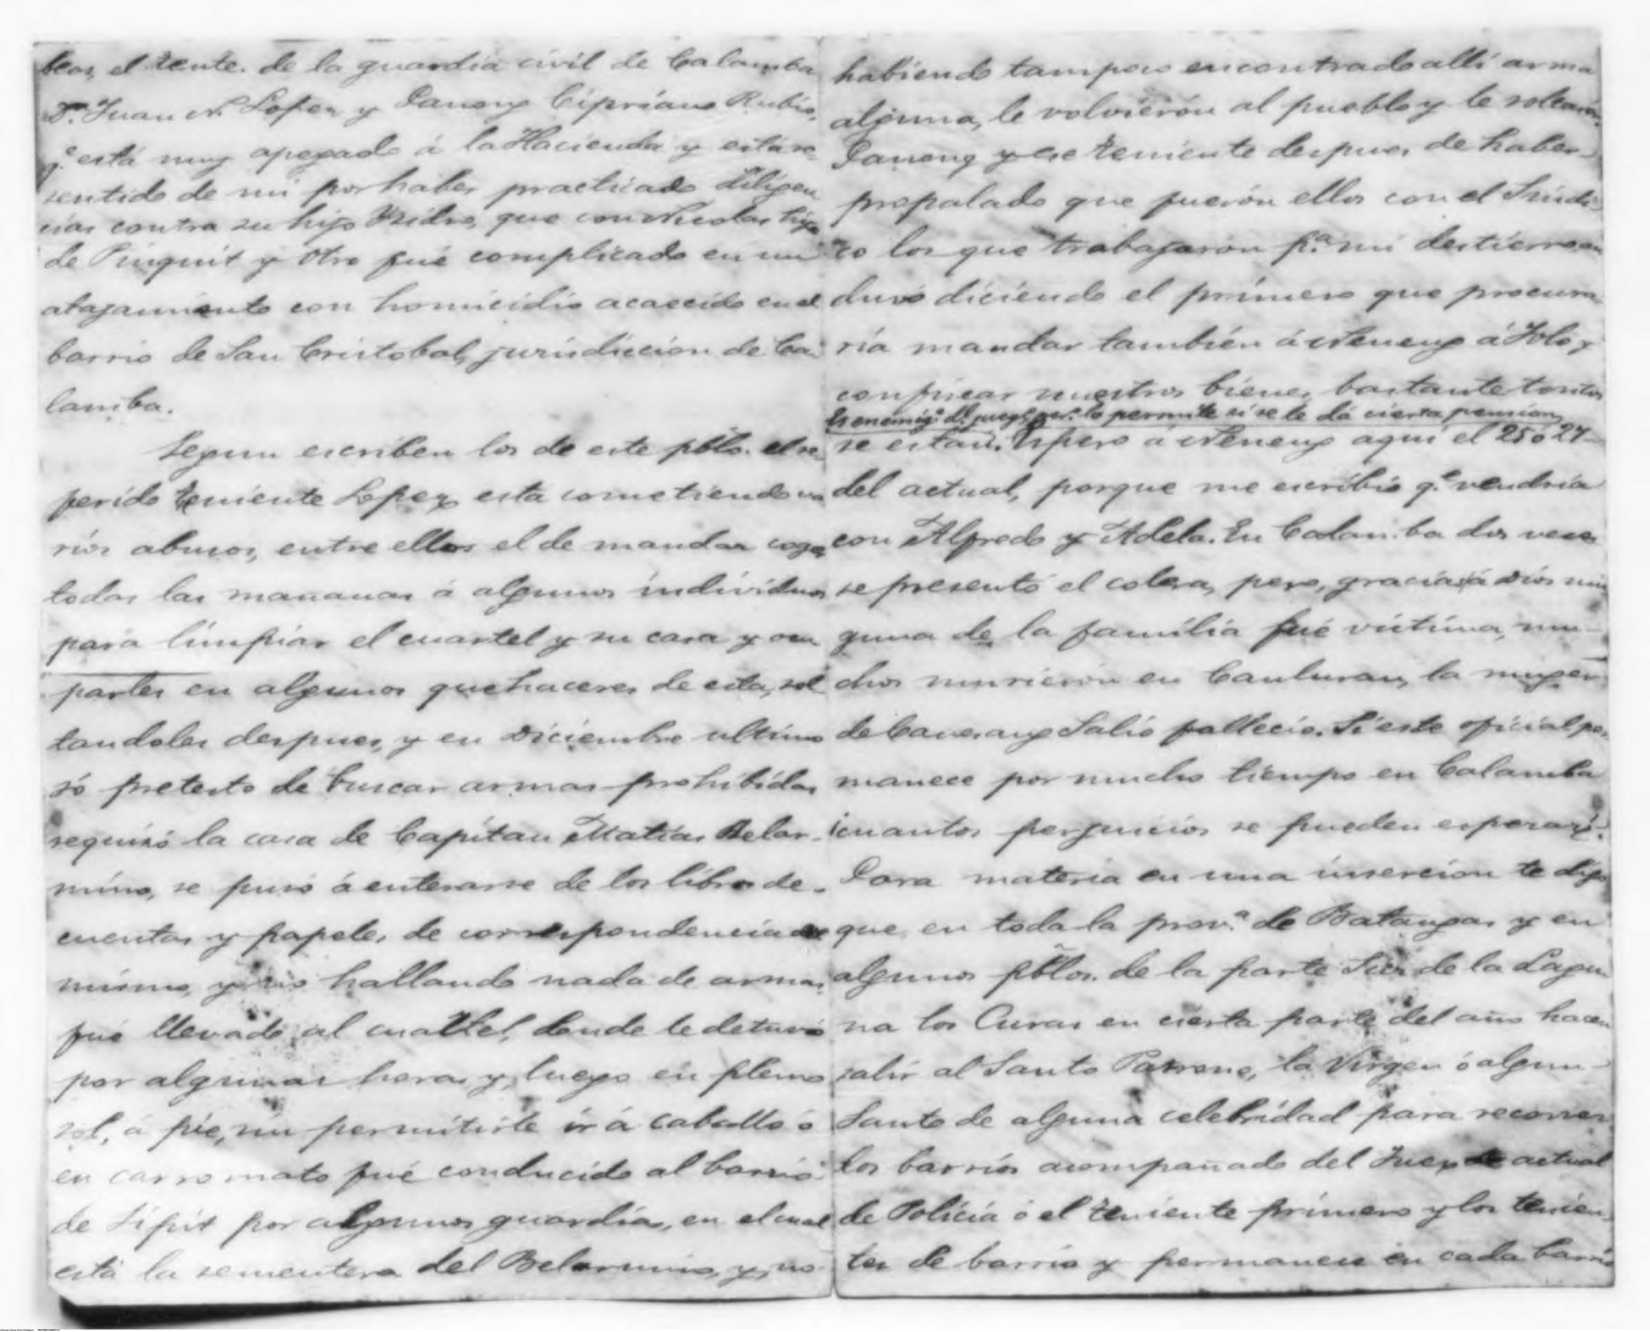 el tente. de la guardia civil de Calamba
Dn. Juan N. Lopez y Danong Cipriano Rubio,
q.e está muy apegado á la Hacienda y está re-
sentido de mi por haber practicado diligen
cias contra su hijo Ysidro, que con Nicolas hijo
de Pinguit y otro fué complicado en un
atajamiento con homicidio acaecido en el
barrio de San Cristobal, jurisdiccion de Ca
lamba.
Segun escriben los de este pblo. el re
ferido teniente Lopez esta cometiendo va
rios abusos, entre ellos el de mandar coger
todas las mañanas á algunos individuos
para limpiar el cuartel y su casa y ocu
parles en algunos quehaceres de esta, sol
tandoles despues, y en Diciembre ultimo
só pretesto de buscar armas prohibidas
requisó la casa de Capitan Matias Belar-
mino, se puso á enterarse de los libros de
cuentas y papeles de correspondencia de
mismo, y no hallando nada de armas,
fué llevado al cuartel, donde le detuvo
por algunas horas y luego en pleno
sol, á pie, sin permitirle ir á caballo ó
en carromato fué conducido al barrio
de Sipit por algunos guardias, en el cual
está la sementera del Belarmino, y no
habiendo tampoco encontrado alli arma
alguna, le volvieron al pueblo y le soltaron.
Danong y ese teniente despues de haber
propalado que fueron ellos con el Sindi
co los que trabajaron p.a mi destierro an
duvo diciendo el primero que procura
ria mandar también á Neneng á Jolo y
confiscar nuestros bienes, bastante tontos
Es enemig.o del juego pero lo permite si se le dá cierta pension
se están. Espero á Neneng aqui el 25 ó 27
del actual, porque me escribió q.e vendria
con Alfredo y Adela. En Calamba dos veces
se presentó el colera, pero, gracias á Dios nin
guna de la familia fué victima, mu-
chos murieron en Canluran, la muger
de Salio fallecio. Si este oficial per
manece por mucho tiempo en Calamba
¡cuantos perjuicios se pueden esperar!
Para materia en una insercion te digo
que en toda la prov.a de Batangas y en
algunos pblos. de la parte Sur de la Lagu
na los Curas en cierta parte del año hacen
salir al Santo Patrono, la Virgen ó algun
Santo de alguna celebridad para recorrer
los barrios acompañado del Juez actual
de Policia ó el teniente primero y los tenien
tes de barrio y permanece en cada barrio